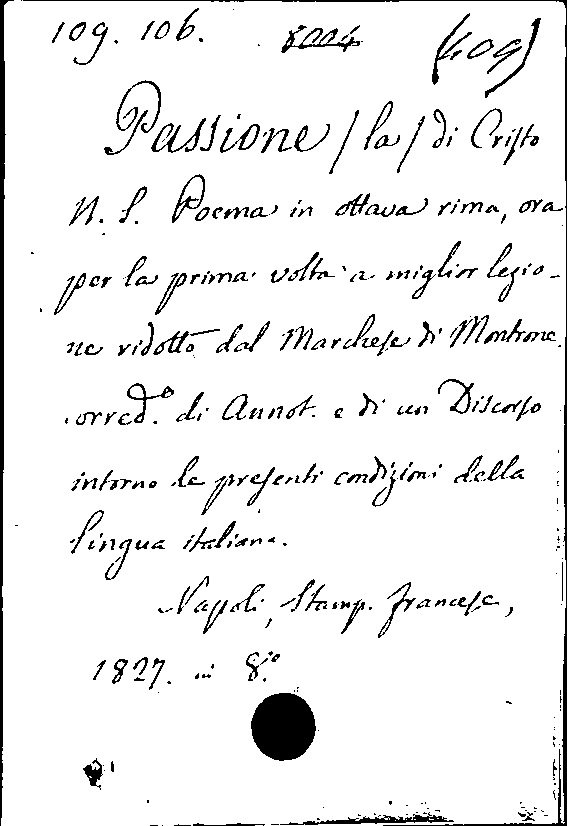 109. 106. 8004 (409)
Passione / la / di Cristo
N. S. Poema in ottava rima, ora
per la prima volta a miglior lezio-
ne ridotto dal Marchese di Montrone.
corred.º di Annot. e di un Discorso
intorno le presenti condizioni della
lingua italiana.
Napoli, Stamp. francese,
1827. in 8.º